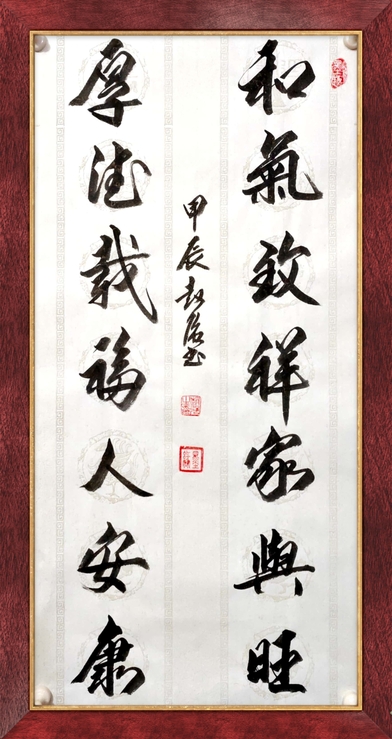 和氣致祥家興旺
厚德載福人安康
甲辰 书